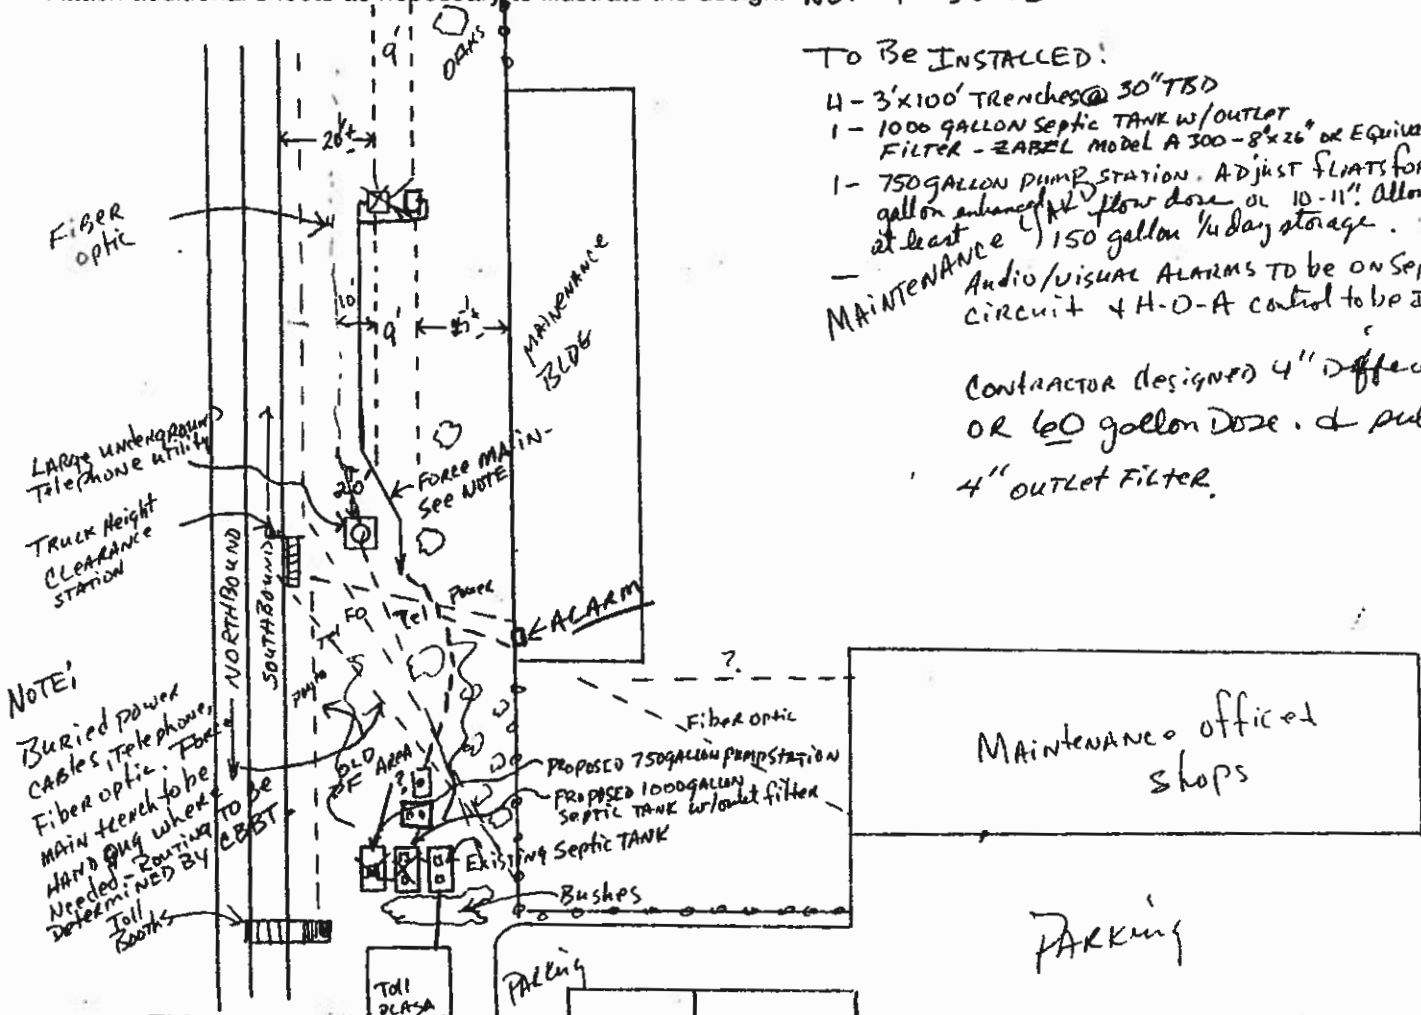 TO Be INSTALLED:
4 - 3'x100' TRenches @ 30" TBD
1 - 1000 GALLON Septic TANK w/outlet
FILTER - ZABEL Model A 300 - 8"x26" OR Equiva
1 - 750 GALLON PUMP STATION. ADjust fLOATS for
gallon enhanced flow dose or 10-11". Allow
at least 150 gallon 1/4 day storage.
MAINTENANCE
Audio/VISUAL ALARMS TO be ON Sep
CIRCUIT + H-O-A control to be I
CONTRACTOR designed 4" Diffe
OR 60 gallon Dose.
4" OUTLET FILTER.
OAKS
9'
20'±
FIBER
optic
10'
9'
25'±
MAINENANCE
BLDG
LARge underground
Telephone utility
20'
FORCE MAIN-
See NOTE
TRUCK Height
CLEARANCE
STATION
NORTHBOUND
SOUTHBOUND
FO
Tel
Power
ALARM
?
NOTE:
Buried power
CABLES, Telephone,
Fiber optic. Force
MAIN trench to be
HAND Dug where
Needed - Routing TO be
DeterMINED BY CBBT.
Fiber optic
OLD
DF AREA
?
PROPOSED 750 GALLON PUMP STATION
PROPOSED 1000 GALLON
Septic TANK w/outlet filter
Existing Septic TANK
Bushes
Toll
Booths
Toll
PLASA
PARKING
MAINTENANCE offices
shops
PARKing